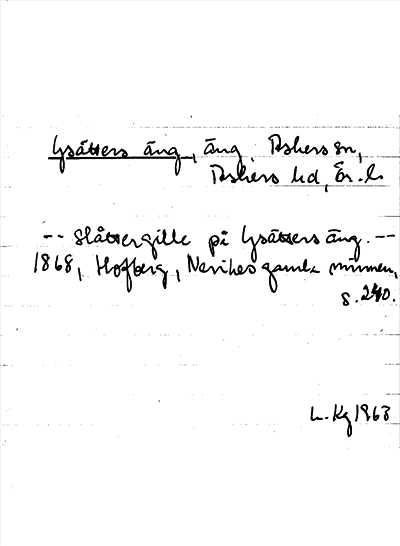 Lysätters äng, äng, Askers sn,
Askers hd, Ör. l.
-- Slåttergille på Lysätters äng. --
1868, Hofberg, Nerikes gamla minnen,
s. 240.
L. Kg 1963